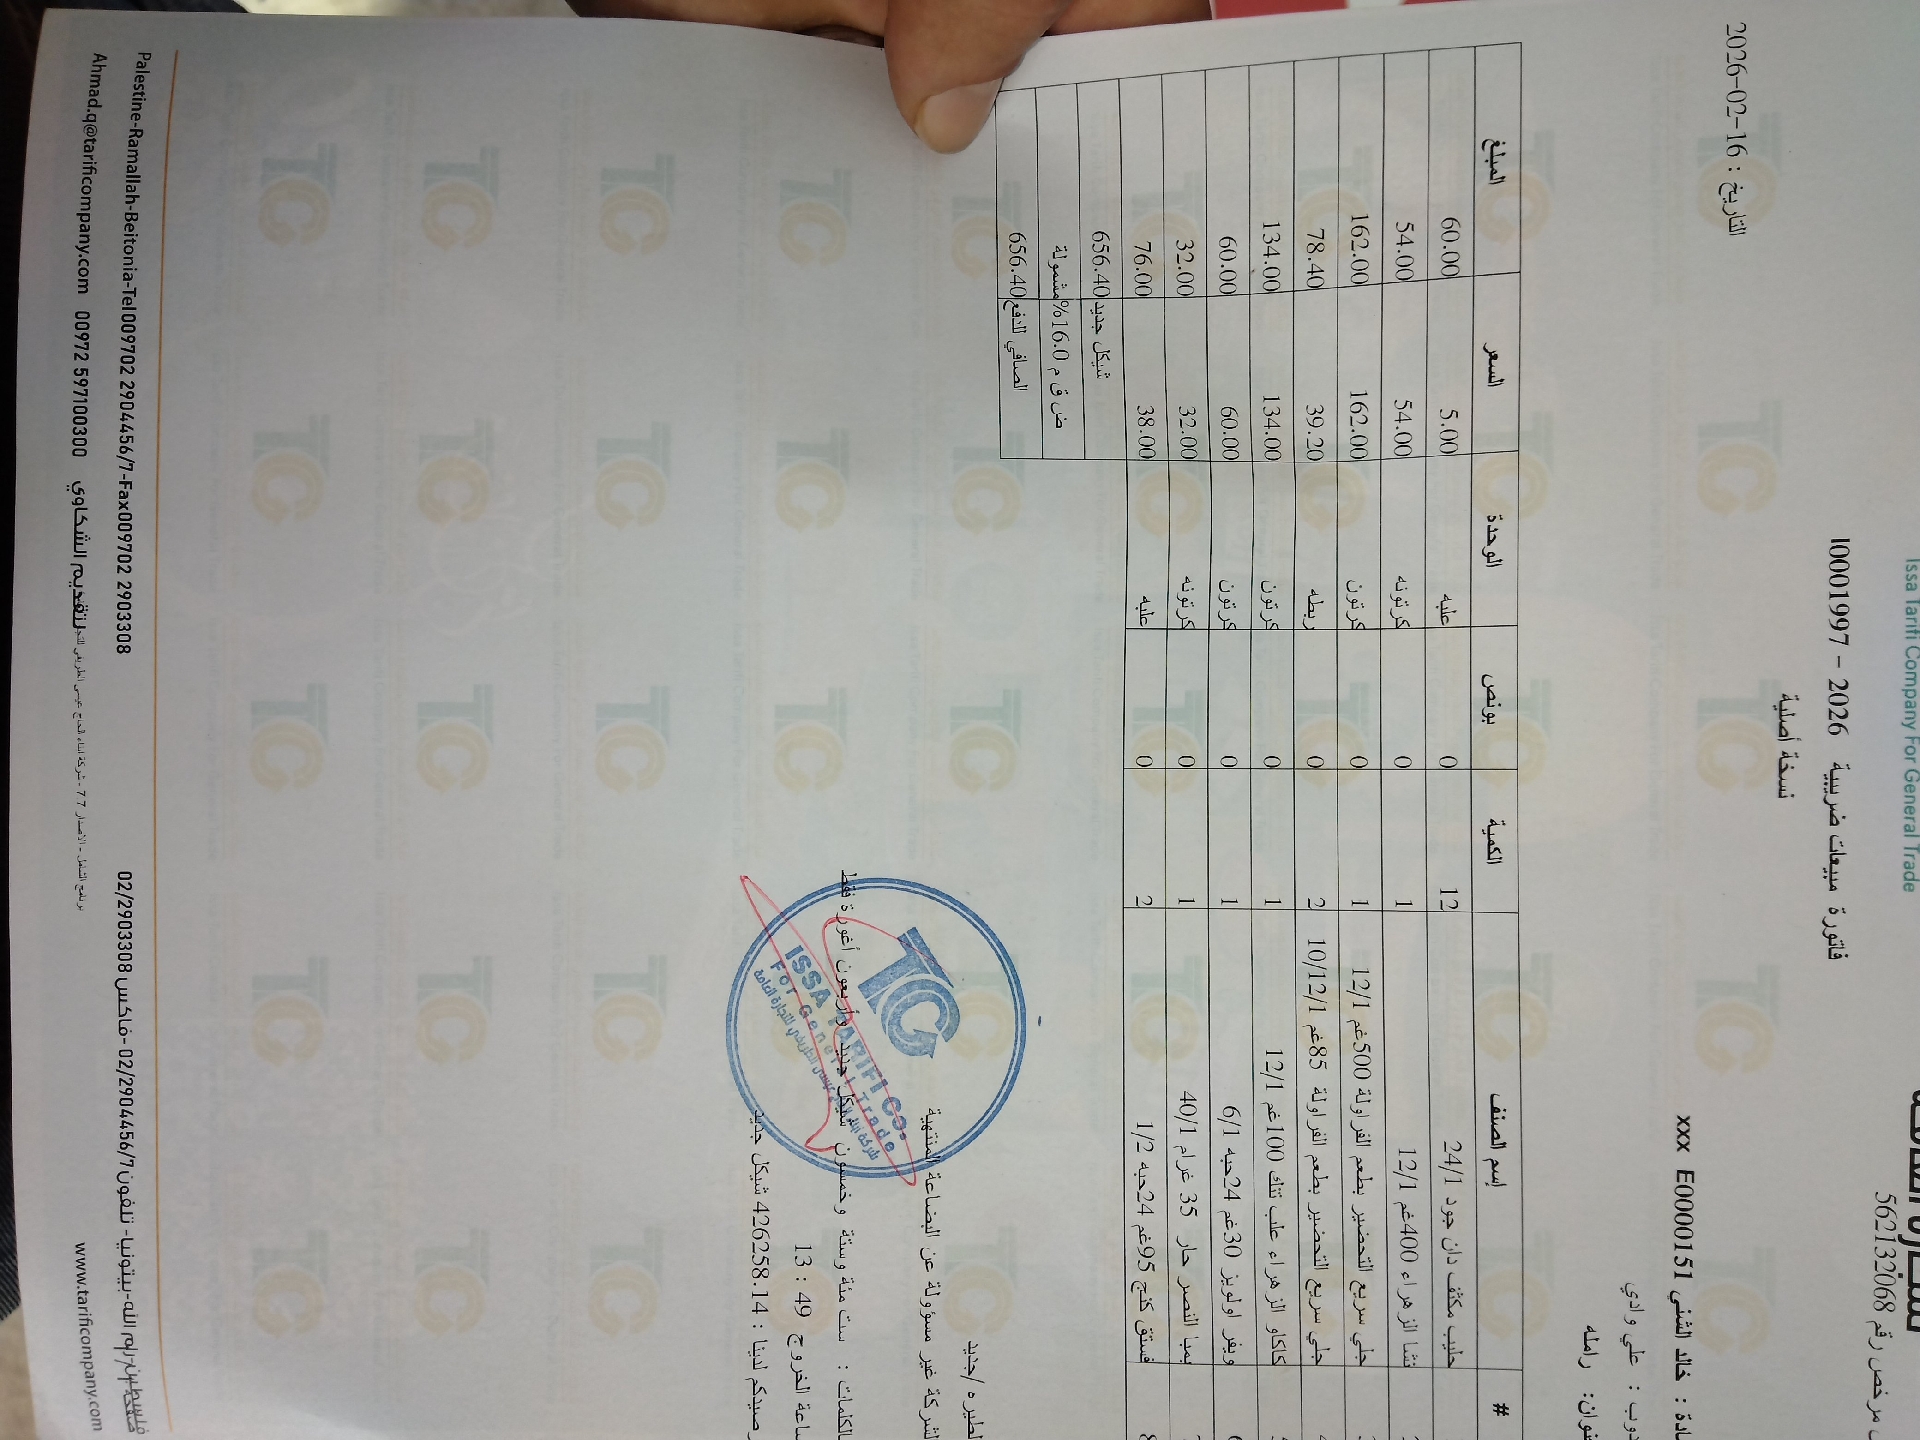 Issa Tarifi Company For General Trade
مرخص رقم 562132068
فاتورة مبيعات ضريبية 2026 - I0001997
نسخة أصلية
التاريخ : 2026-02-16
خالد الشني xxx E0000151
علي وادي
رامله
# إسم الصنف الكمية بونص الوحدة السعر المبلغ
حليب مكثف دان جود 24/1 12 0 علبه 5.00 60.00
نشا الزهراء 400غم 12/1 1 0 كرتونه 54.00 54.00
جلي سريع التحضير بطعم الفراولة 500غم 12/1 1 0 كرتون 162.00 162.00
جلي سريع التحضير بطعم الفراولة 85غم 10/12/1 2 0 ربطه 39.20 78.40
كاكاو الزهراء علب تنك 100غم 12/1 1 0 كرتون 134.00 134.00
ويفر اولويز 30غم 24حبه 6/1 1 0 كرتون 60.00 60.00
بمبا النصر حار 35 غرام 40/1 1 0 كرتونه 32.00 32.00
8 فستق كنج 95غم 24حبه 1/2 2 0 علبه 38.00 76.00
شيكل جديد 656.40
ض ق م 16.0% مشمولة
الصافي للدفع 656.40
الطيره /جديد
الشركة غير مسؤولة عن البضاعة المنتهية
بالكلمات : ست مئة وستة وخمسون شيكل جديد وأربعون أغورة فقط
ساعة الخروج 49 : 13
رصيدكم لدينا : 426258.14 شيكل جديد
TC
ISSA TARIFI CO.
For General Trade
Palestine-Ramallah-Beitonia-Tel009702 2904456/7-Fax009702 2903308
فلسطين-رام الله-بيتونيا- تلفون 02/2904456/7 -فاكس 02/2903308
Ahmad.q@tarificompany.com 00972 597100300 لتقديم الشكاوي
www.tarificompany.com